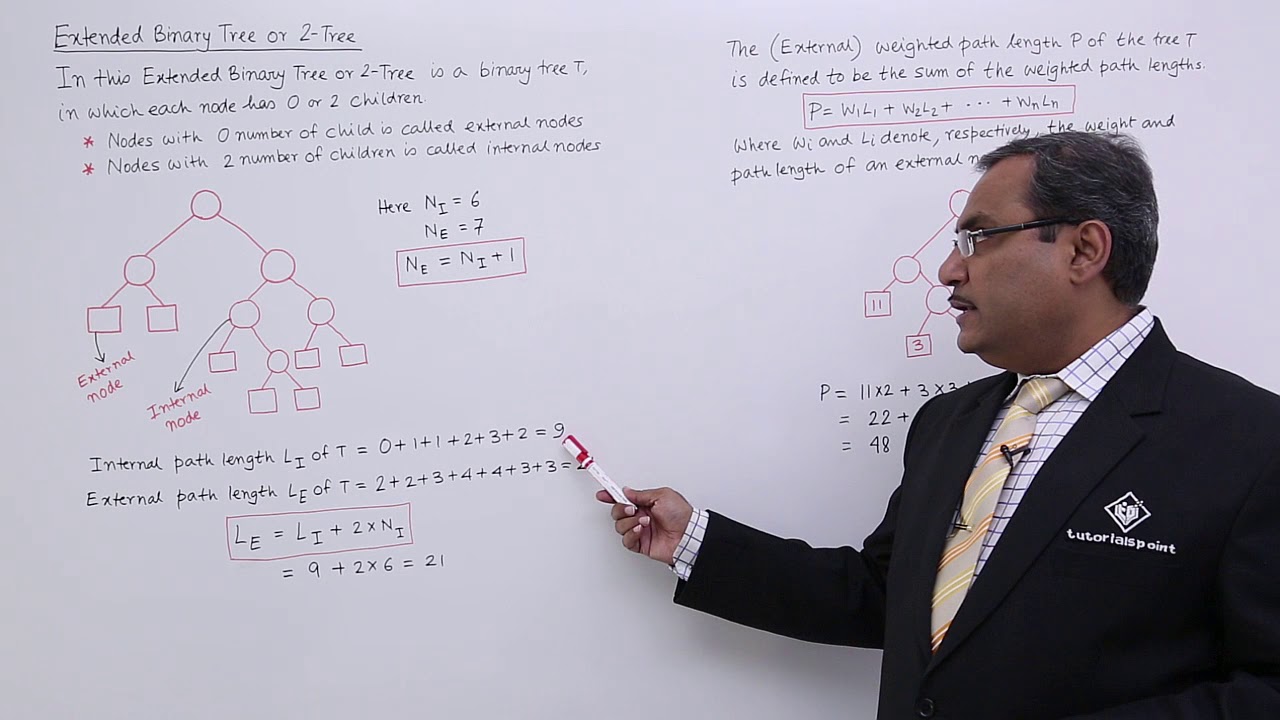 Extended Binary Tree or 2-Tree
In this Extended Binary Tree or 2-Tree is a binary tree T,
in which each node has 0 or 2 children.
* Nodes with 0 number of child is called external nodes
* Nodes with 2 number of children is called internal nodes
Here N_I = 6
N_E = 7
N_E = N_I + 1
External
node
Internal
node
Internal path length L_I of T = 0+1+1+2+3+2 = 9
External path length L_E of T = 2+2+3+4+4+3+3 =
L_E = L_I + 2×N_I
= 9 + 2×6 = 21
The (External) weighted path length P of the tree T
is defined to be the sum of the weighted path lengths.
P = W₁L₁ + W₂L₂ + ... + WₙLₙ
Where Wi and Li denote, respectively, the weight and
path length of an external
11
3
P = 11×2 + 3×3
= 22 +
= 48
tutorialspoint